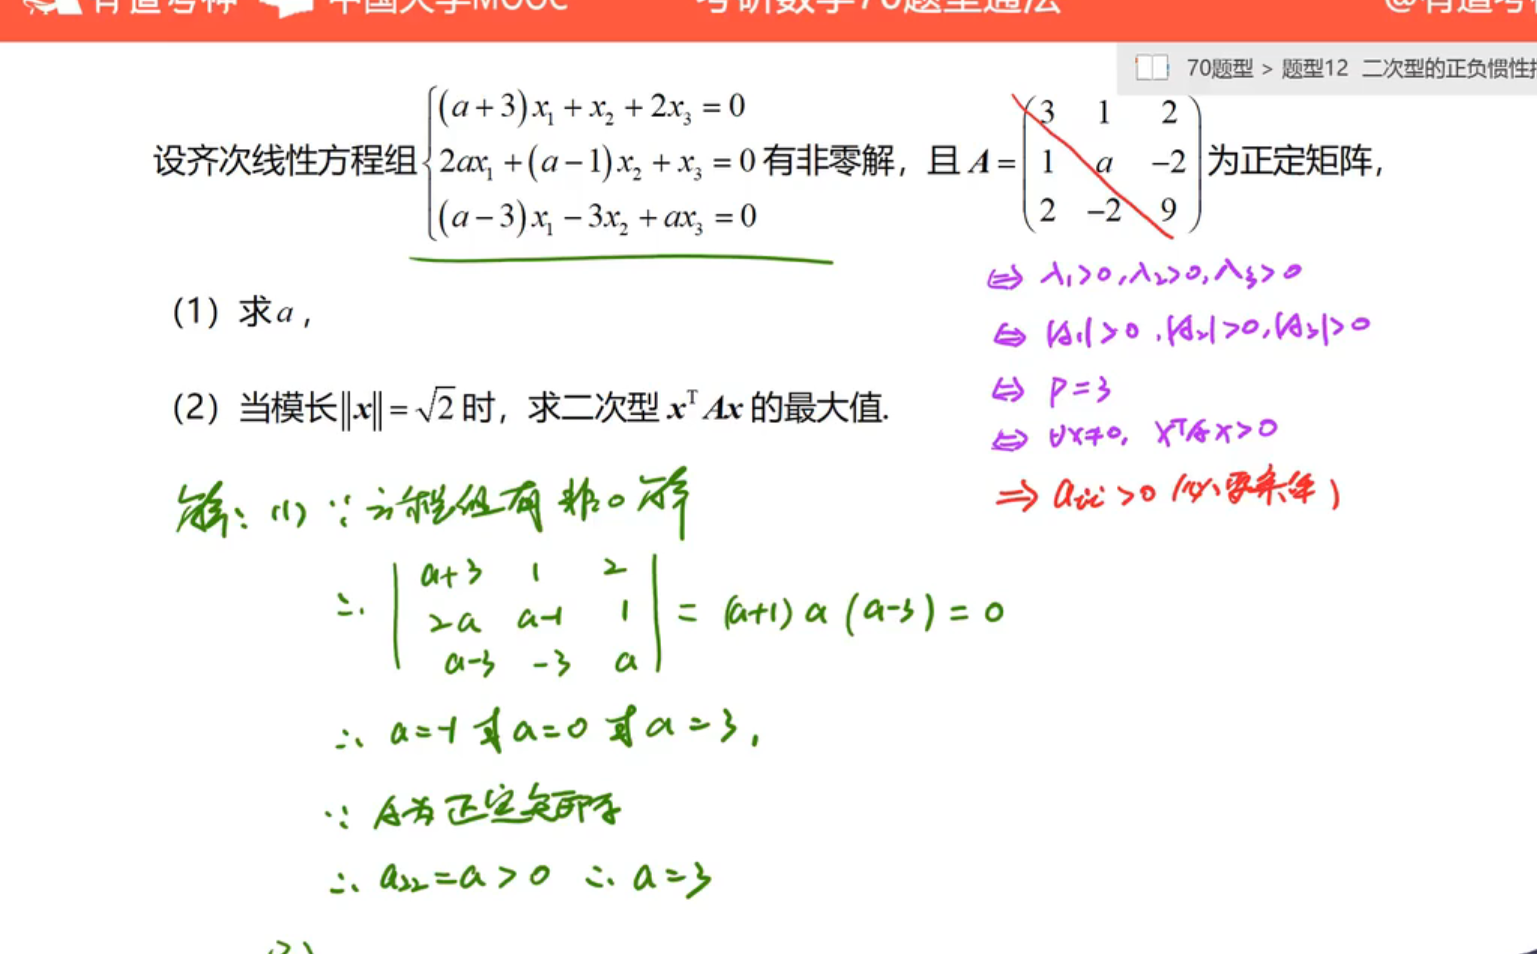 中国大学MOOC 考研数学70题型通法
70题型 > 题型12 二次型的正负惯性
设齐次线性方程组 { (a+3)x₁ + x₂ + 2x₃ = 0
2ax₁ + (a−1)x₂ + x₃ = 0
(a−3)x₁ − 3x₂ + ax₃ = 0
有非零解，且 A = ( 3 1 2
1 a −2
2 −2 9 ) 为正定矩阵，
(1) 求a，
(2) 当模长‖x‖ = √2 时，求二次型 xᵀAx 的最大值.
⇔ λ₁>0, λ₂>0, λ₃>0
⇔ |A₁|>0, |A₂|>0, |A₃|>0
⇔ P=3
⇔ ∀x≠0, xᵀAx>0
⇒ aᵢᵢ>0 (必要条件)
解: (1) ∵ 方程组有非0解
∴ | a+3 1 2
2a a-1 1
a-3 -3 a | = (a+1) a (a-3) = 0
∴ a=-1 或 a=0 或 a=3,
∵ A为正定矩阵
∴ a₂₂=a>0 ∴ a=3